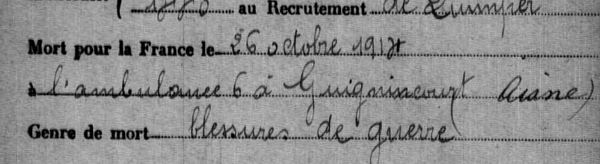 au Recrutement de Quimper
Mort pour la France le 26 octobre 1917
à l'ambulance 6 à Guignincourt (Aisne)
Genre de mort blessures de guerre